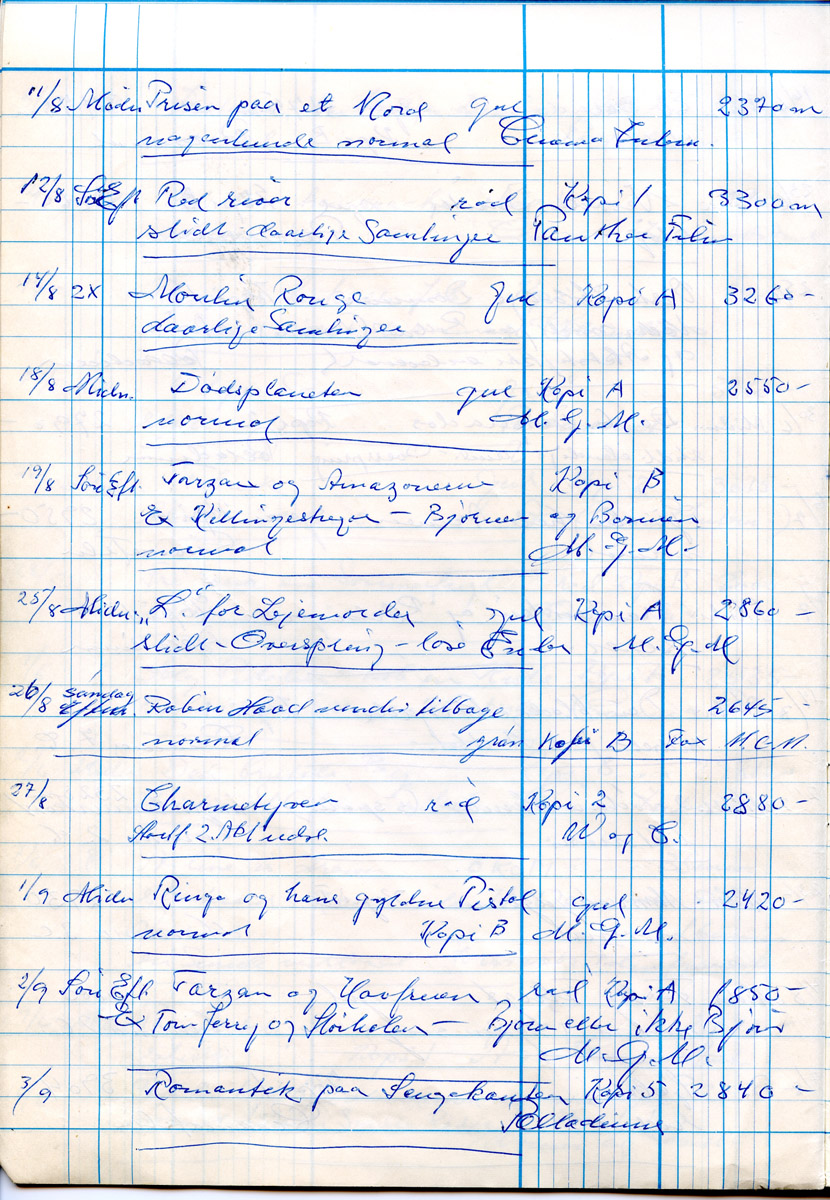 11/8 Midn Prisen paa et Mord gul 2370 m
normal
12/8 Søn Eft Red river rød Kopi 1 3300 m
slidt daarlige Samlinger Panther Film
14/8 2X Moulin Rouge gul Kopi A 3260 -
daarlige Samlinger
18/8 Midn. Dødsplaneten gul Kopi A 2550 -
normal M. G. M.
19/8 Søn Eft. Tarzan og Amazonerne Kopi B
Ex Killingestregen - Bjørnen og Barnum
normal M. G. M.
25/8 Midn. "L" for Lejemorder gul Kopi A 2860 -
slidt - Overspring - løse M. G. M
26/8 søndag Efterm. Robin Hood vender tilbage 2645 -
normal grøn Kopi B Fox M. G. M.
27/8 Charmetyven rød Kopi 2 2880 -
2. Akt W og C.
1/9 Midn Ringo og hans gyldne Pistol gul 2420 -
normal Kopi B M. G. M.
2/9 Søn Eft. Tarzan og Havfruen rød Kopi A 1850 -
Ex Tom Jerry og - Bjørn eller ikke Bjørn
M. G. M.
3/9 Romantik paa Sengekanten Kopi 5 2840 -
Palladium